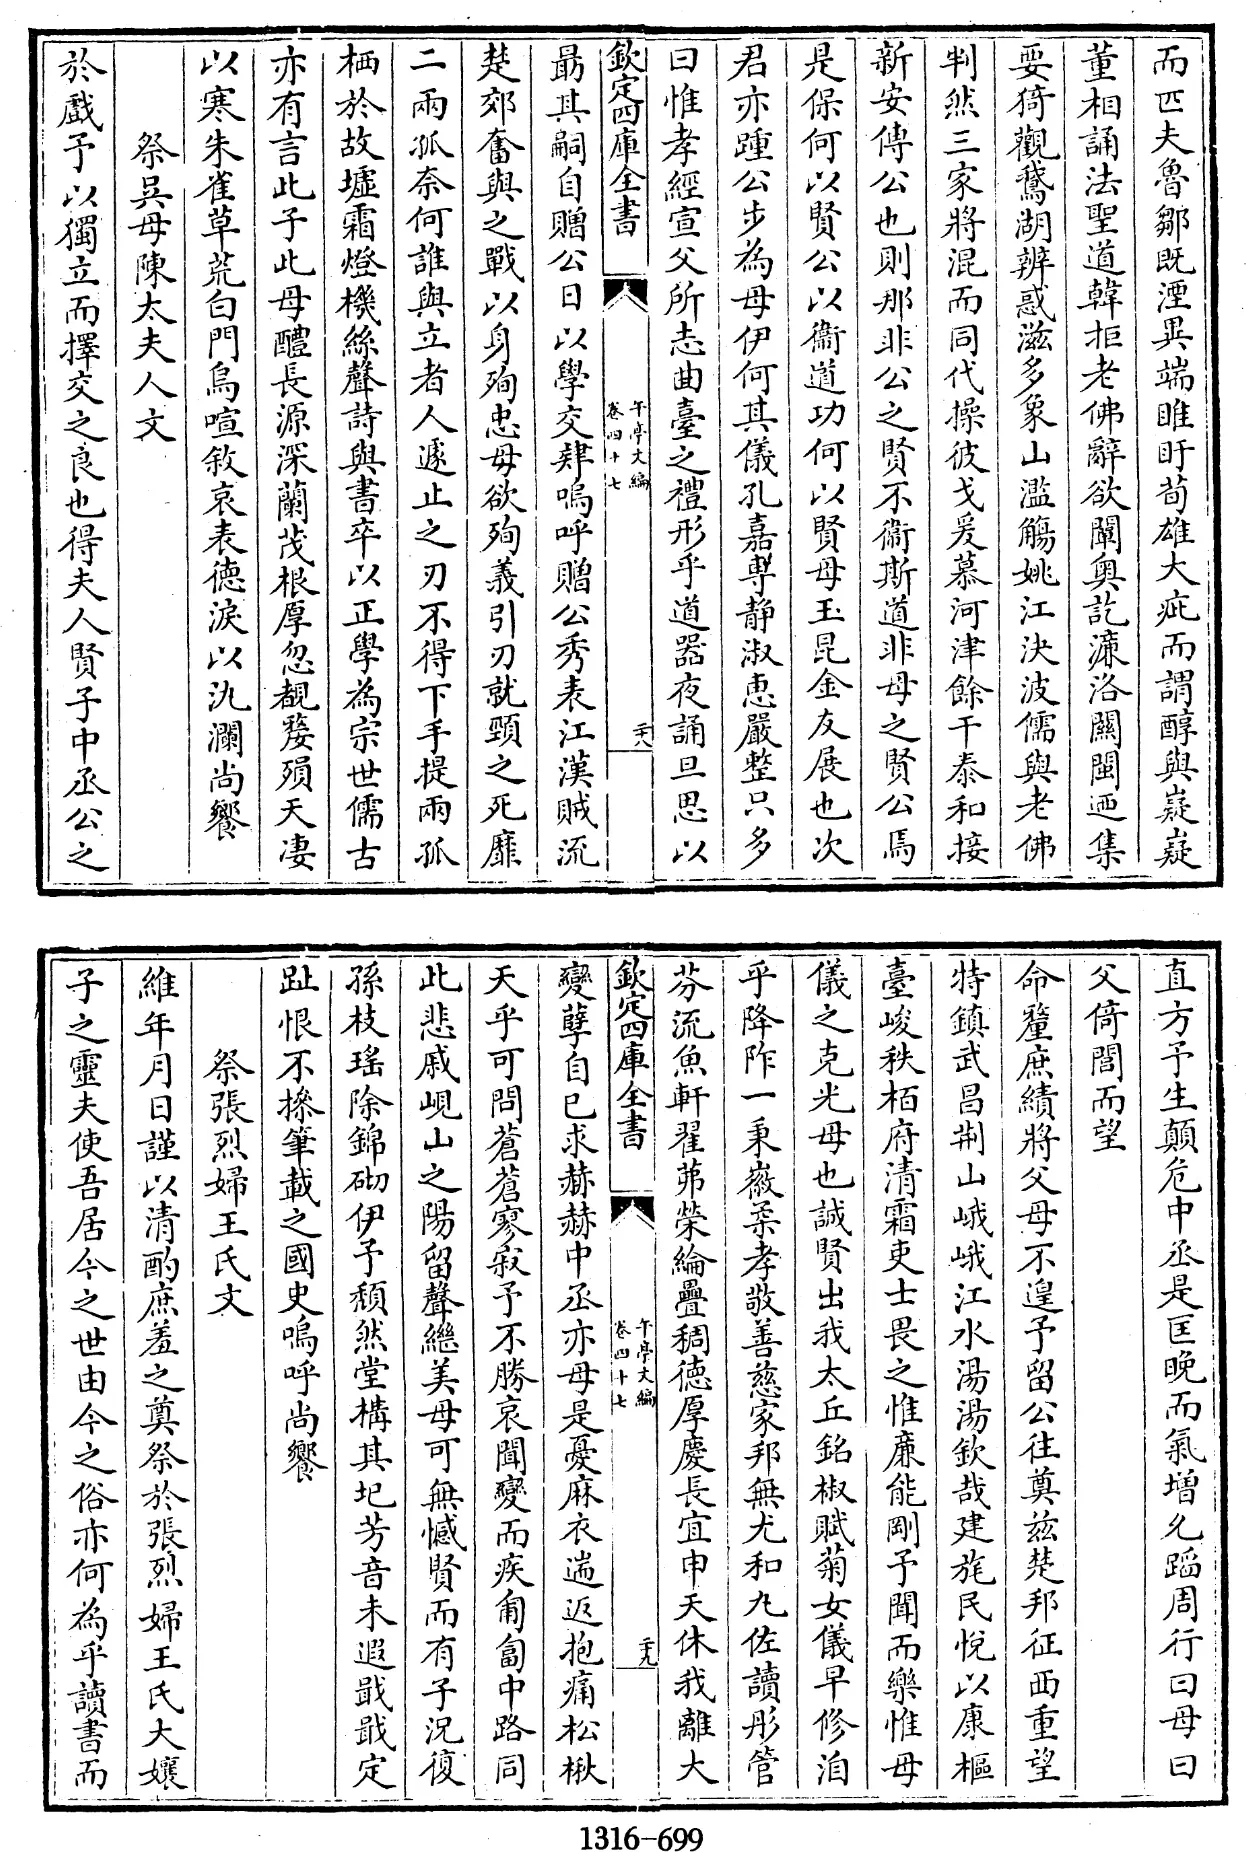 而匹夫魯鄒既湮異端睢盱荀雄大疵而謂醇與嶷嶷
董相誦法聖道韓拒老佛辭欲闡奧訖濂洛關閩迺集
要猗觀鵞湖辨惑滋多象山濫觴姚江決波儒與老佛
判然三家將混而同代操彼戈爰慕河津餘干泰和接
新安傳公也則那非公之賢不衞斯道非母之賢公焉
是保何以賢公以衞道功何以賢母玉昆金友展也次
君亦踵公步為母伊何其儀孔嘉專静淑恵嚴整只多
曰惟孝經宣父所志曲臺之禮形乎道器夜誦旦思以
欽定四庫全書
午亭文編
卷四十七
二十八
朂其嗣自贈公日以學交肄嗚呼贈公秀表江漢賊流
楚郊奮與之戰以身殉忠母欲殉義引刃就頸之死靡
二兩孤奈何誰與立者人遽止之刃不得下手提兩孤
栖於故墟霜燈機絲聲詩與書卒以正學為宗世儒古
亦有言此子此母醴長源深蘭茂根厚忽覩婺殞天凄
以寒朱雀草荒白門烏喧敘哀表德淚以氿瀾尚饗
祭吳母陳太夫人文
於戲予以獨立而擇交之良也得夫人賢子中丞公之
直方予生顛危中丞是匡晚而氣增允蹈周行曰母曰
父倚閭而望
命釐庶績將父母不遑予留公往奠兹楚邦征西重望
特鎮武昌荆山峨峨江水湯湯欽哉建旄民悅以康樞
臺峻秩栢府清霜吏士畏之惟廉能剛予聞而樂惟母
儀之克光母也誠賢出我太丘銘椒賦菊女儀早修洎
乎降阼一秉徽柔孝敬善慈家邦無尤和丸佐讀彤管
芬流魚軒翟茀榮綸疊稠德厚慶長宜申天休我離大
欽定四庫全書
午亭文編
卷四十七
二十九
變孽自已求赫赫中丞亦母是憂麻衣遄返抱痛松楸
天乎可問蒼蒼寥寂予不勝哀聞變而疾匍匐中路同
此悲戚峴山之陽留聲繼美母可無憾賢而有子況復
孫枝瑤除錦砌伊予頹然堂構其圮芳音未遐戢戢定
趾恨不摻筆載之國史嗚呼尚饗
祭張烈婦王氏文
維年月日謹以清酌庶羞之奠祭於張烈婦王氏大孃
子之靈夫使吾居今之世由今之俗亦何為乎讀書而
1316-699